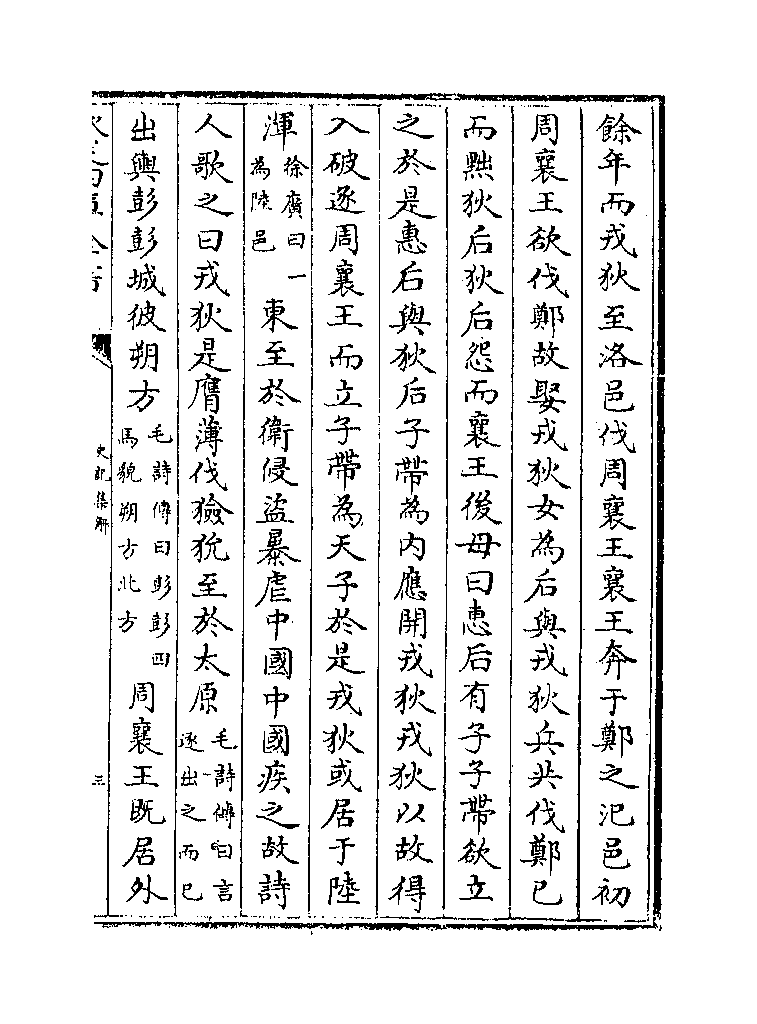 餘年而戎狄至洛邑伐周襄王襄王奔于鄭之汜邑初
周襄王欲伐鄭故娶戎狄女為后與戎狄兵共伐鄭已
而黜狄后狄后怨而襄王後母曰惠后有子子帶欲立
之於是惠后與狄后子帶為内應開戎狄戎狄以故得
入破逐周襄王而立子帶為天子於是戎狄或居于陸
渾徐廣曰一為陸邑東至於衛侵盗暴虐中國中國疾之故詩
人歌之曰戎狄是膺薄伐獫狁至於太原毛詩傳曰言逐出之而已
出輿彭彭城彼朔方毛詩傳曰彭彭四馬貌朔方北方周襄王既居外
史記集解
三